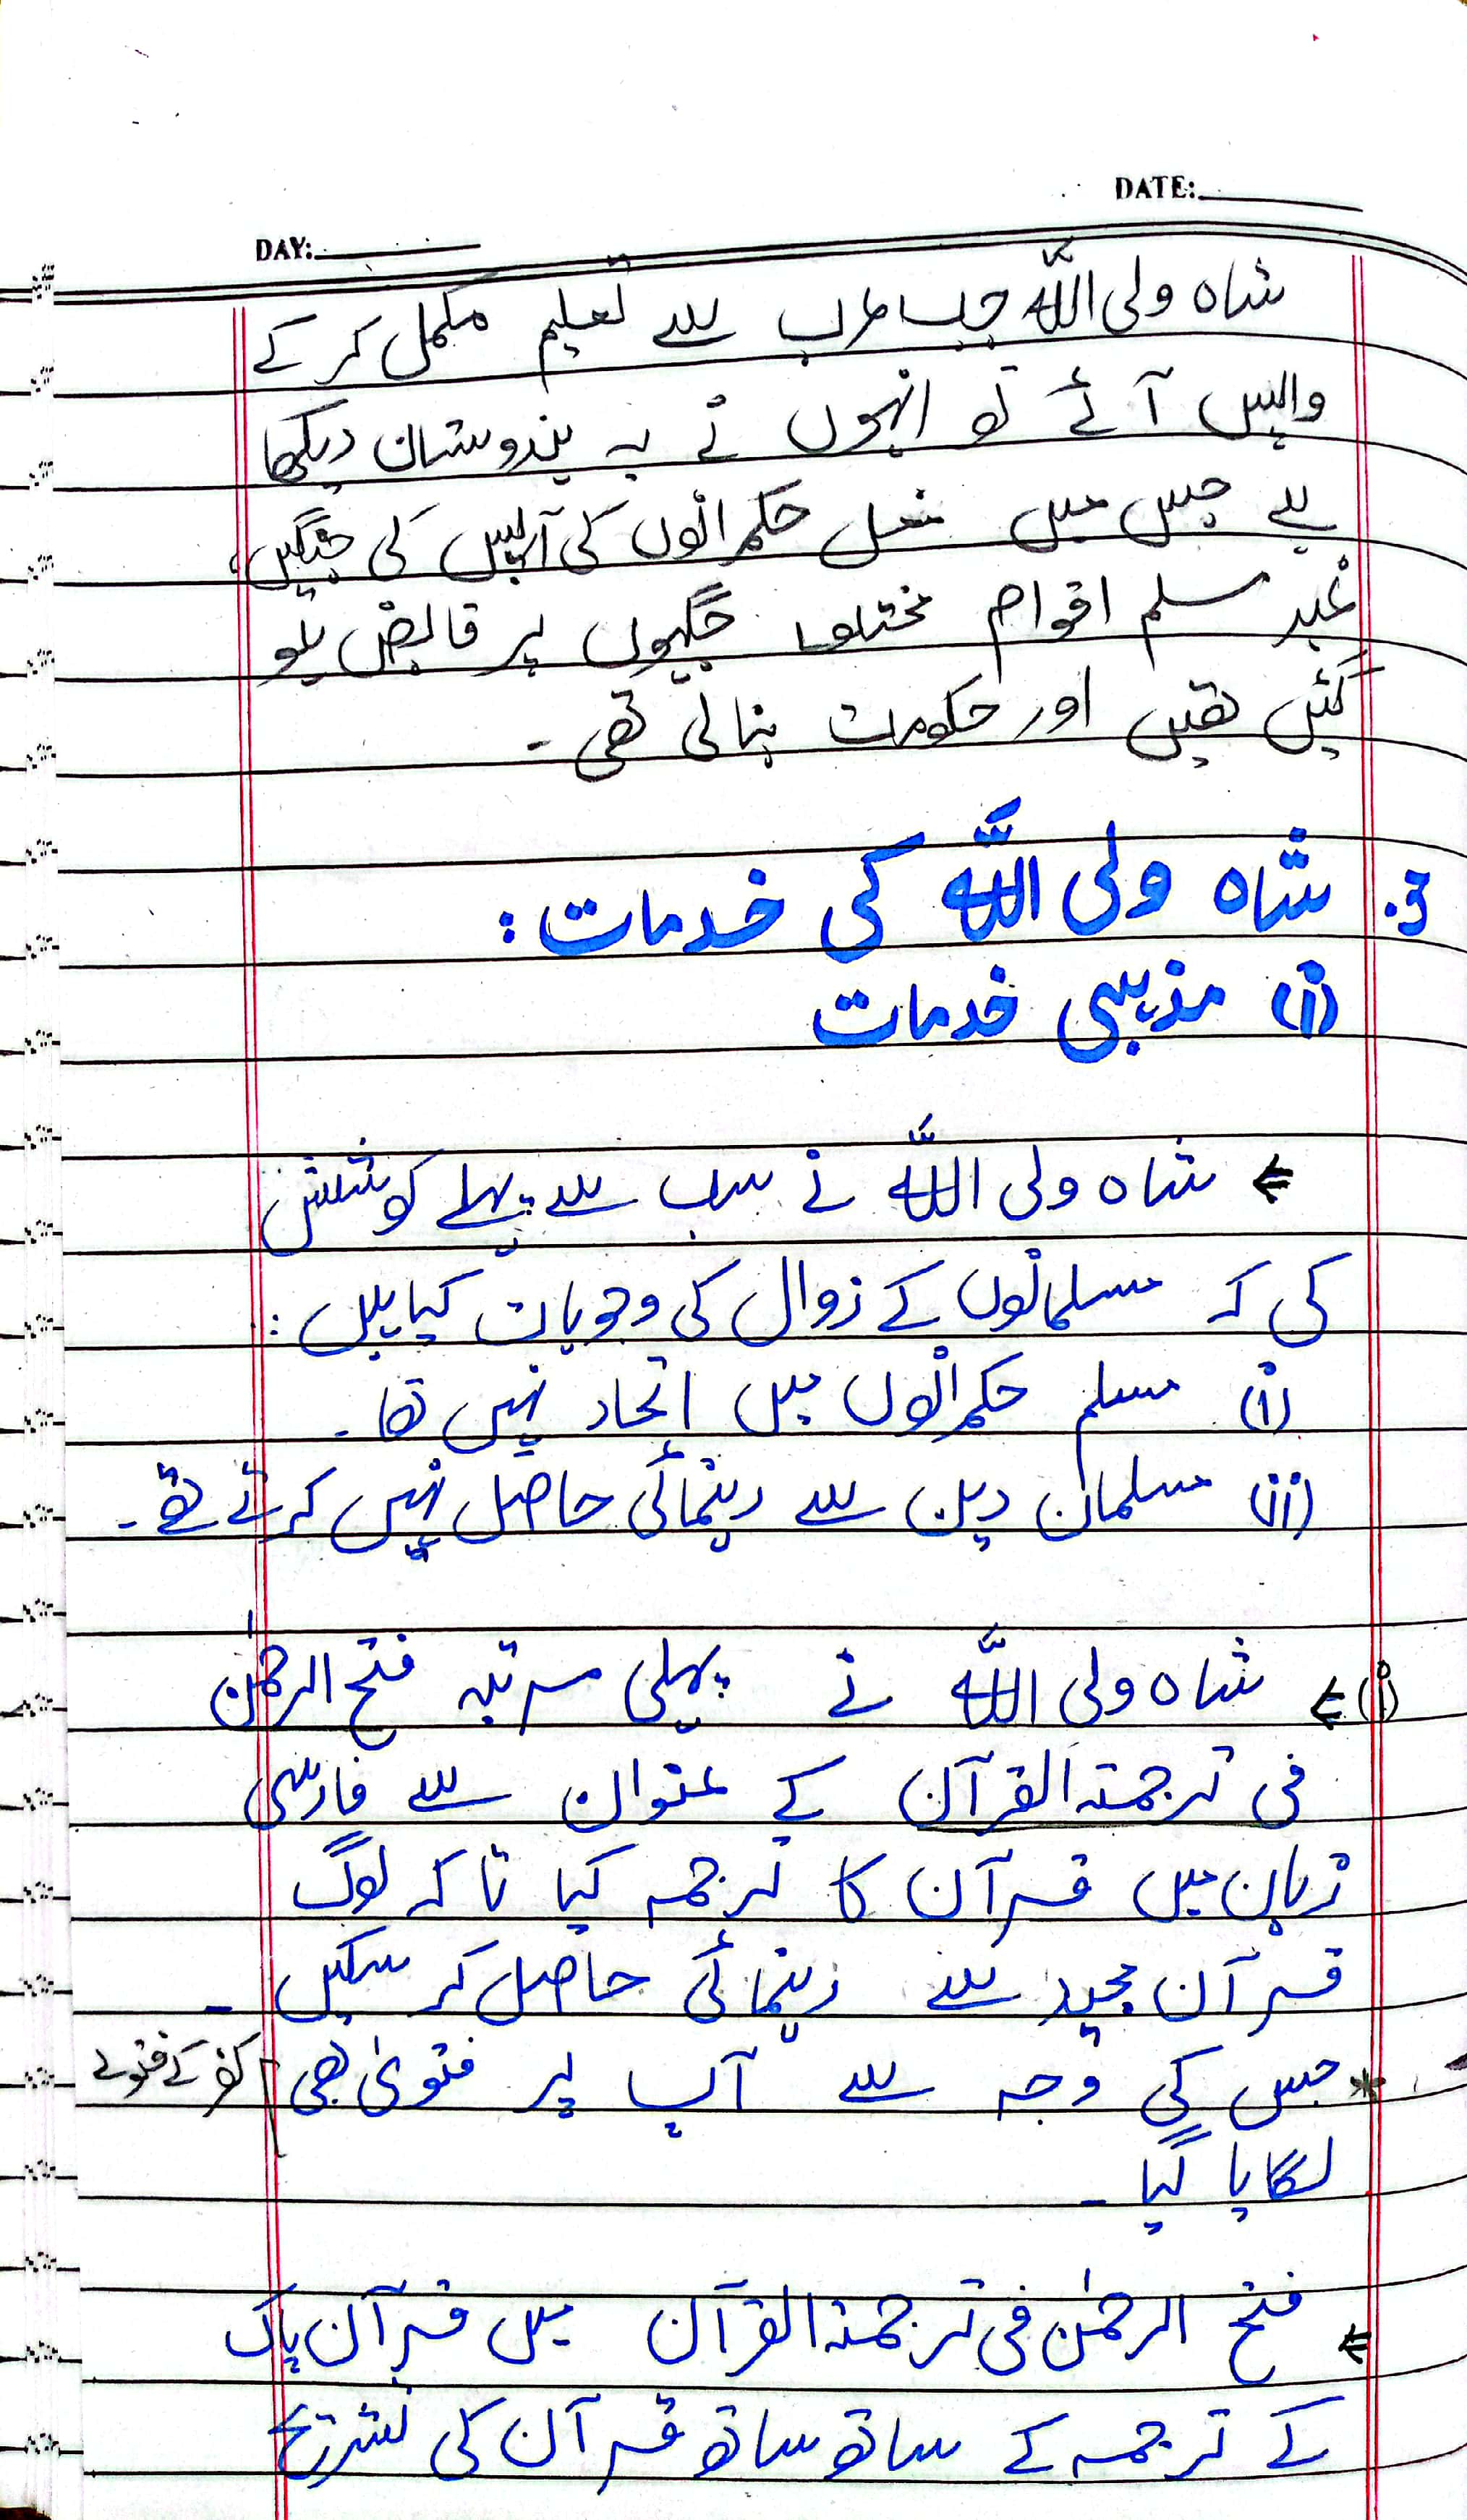 DATE:
DAY:
شاہ ولی اللّٰہ جب عرب سے تعلیم مکمل کر کے
واپس آئے تو انہوں نے یہ ہندوستان دیکھا
ہے جس میں مغل حکمرانوں کی آپس کی جنگیں،
غیر مسلم اقوام مختلف جگہوں پر قابض ہو
گئیں تھیں اور حکومت بنالی تھی۔
3. شاہ ولی اللّٰہ کی خدمات:
(i) مذہبی خدمات
← شاہ ولی اللّٰہ نے سب سے پہلے کوشش
کی کہ مسلمانوں کے زوال کی وجوہات کیا ہیں:
(i) مسلم حکمرانوں میں اتحاد نہیں تھا۔
(ii) مسلمان دین سے رہنمائی حاصل نہیں کرتے تھے۔
(i) ← شاہ ولی اللّٰہ نے پہلی مرتبہ فتح الرحمٰن
فی ترجمتہ القرآن کے عنوان سے فارسی
زبان میں قرآن کا ترجمہ کیا تاکہ لوگ
قرآن مجید سے رہنمائی حاصل کر سکیں۔
* جس کی وجہ سے آپ پر فتویٰ بھی [کفر کے فتوے
لگایا گیا۔
← فتح الرحمٰن فی ترجمتہ القرآن میں قرآن پاک
کے ترجمہ کے ساتھ ساتھ قرآن کی تشریح